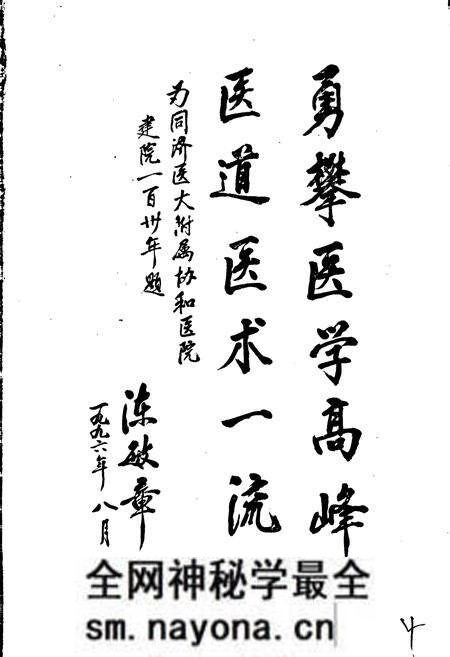 勇攀医学高峰
医道医术一流
为同济医大附属协和医院
建院一百卅年题
陈敏章
一九九六年八月
全网神秘学最全
sm.nayona.cn